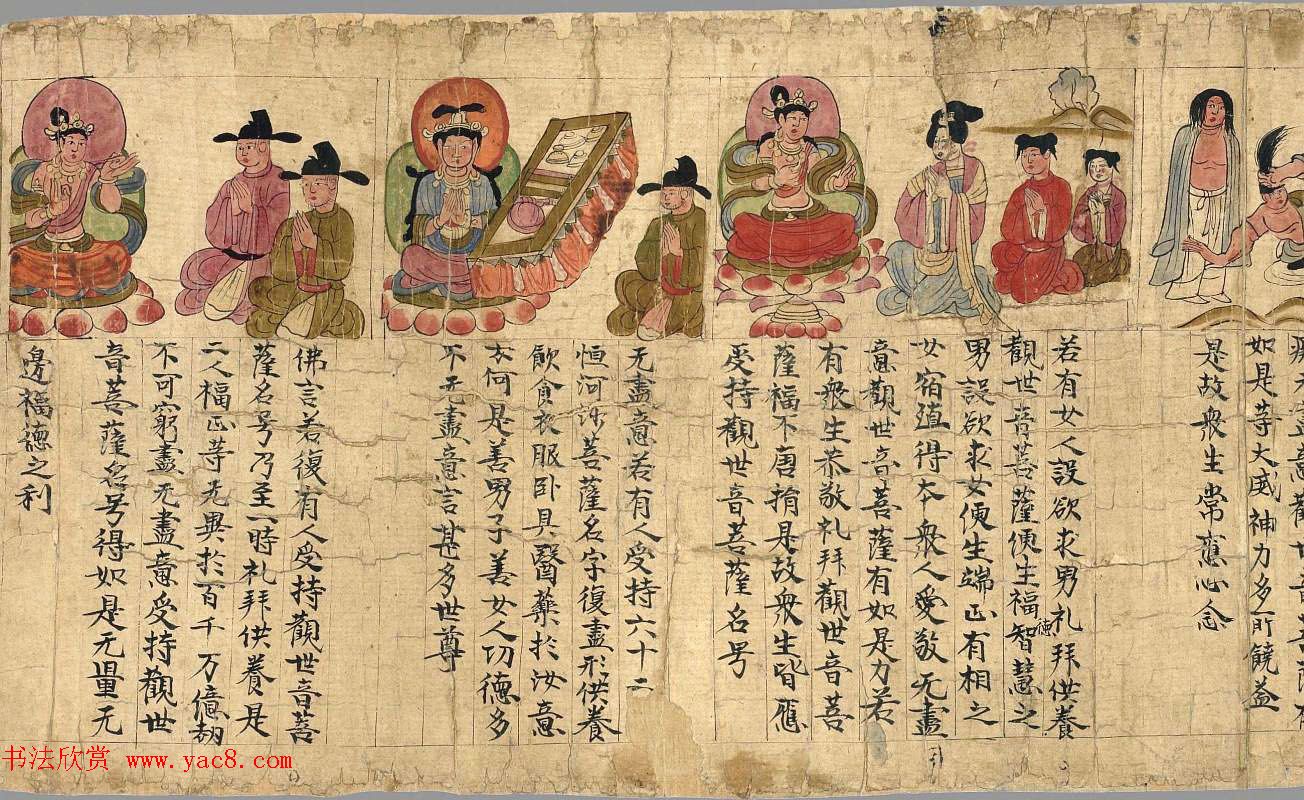 如是等大威神力多所饒益
是故衆生常應心念
若有女人設欲求男礼拜供養
觀世音菩薩便生福德智慧之
男設欲求女便生端正有相之
女宿殖得本衆人愛敬无盡
意觀世音菩薩有如是力若
有衆生恭敬礼拜觀世音菩
薩福不唐捐是故衆生皆應
受持觀世音菩薩名号
无盡意若有人受持六十二
恒河沙菩薩名字復盡形供養
飲食衣服卧具醫藥於汝意
云何是善男子善女人功德多
不无盡意言甚多世尊
佛言若復有人受持觀世音菩
薩名号乃至一時礼拜供養是
二人福正等无異於百千万億劫
不可窮盡无盡意受持觀世
音菩薩名号得如是无量无
邊福德之利
书法欣赏 www.yac8.com